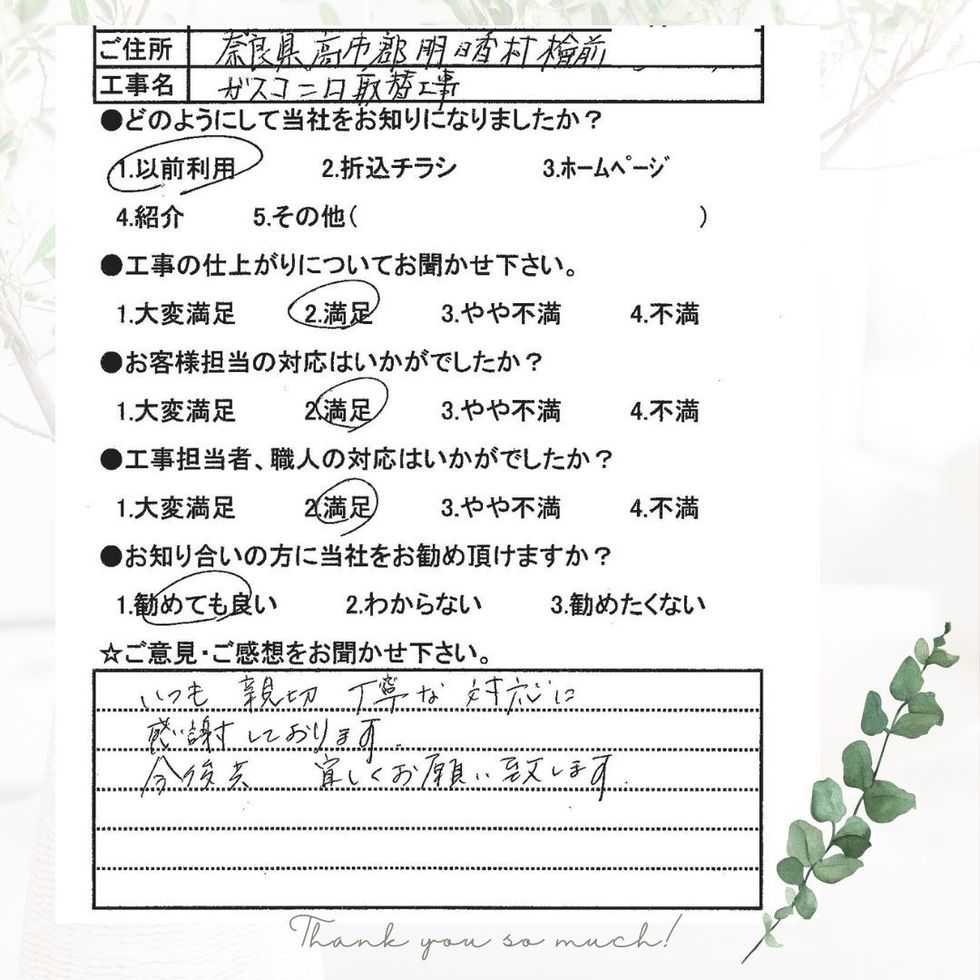 ご住所 奈良県高市郡明日香村檜前
工事名 ガスコンロ取替工事
●どのようにして当社をお知りになりましたか？
1.以前利用 2.折込チラシ 3.ﾎｰﾑﾍﾟｰｼﾞ
4.紹介 5.その他( )
●工事の仕上がりについてお聞かせ下さい。
1.大変満足 2.満足 3.やや不満 4.不満
●お客様担当の対応はいかがでしたか？
1.大変満足 2.満足 3.やや不満 4.不満
●工事担当者、職人の対応はいかがでしたか？
1.大変満足 2.満足 3.やや不満 4.不満
●お知り合いの方に当社をお勧め頂けますか？
1.勧めても良い 2.わからない 3.勧めたくない
☆ご意見・ご感想をお聞かせ下さい。
いつも 親切 丁寧な 対応に
感謝しております。
今後共 宜しくお願い致します。
Thank you so much!